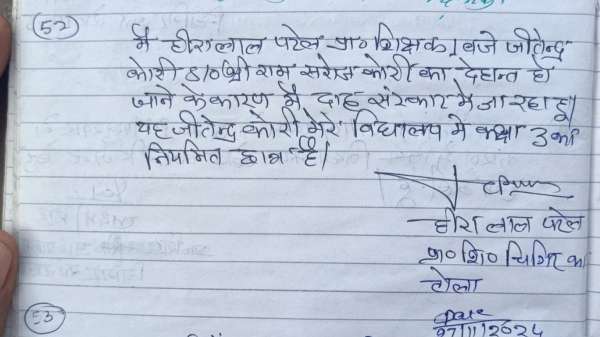 (52)
मै हीरालाल पटेल प्रा० शिक्षक 1 बजे जीतेन्द्र
कोरी S/० श्री राम सरोज कोरी का देहान्त हो
जाने के कारण मैं दाह संस्कार मे जा रहा हू।
यह जीतेन्द्र कोरी मेरे विद्यालय मे कक्षा 3 का
नियमित छात्र है।
हीरा लाल पटेल
प्रा० शि०
टोला
(53)
Date